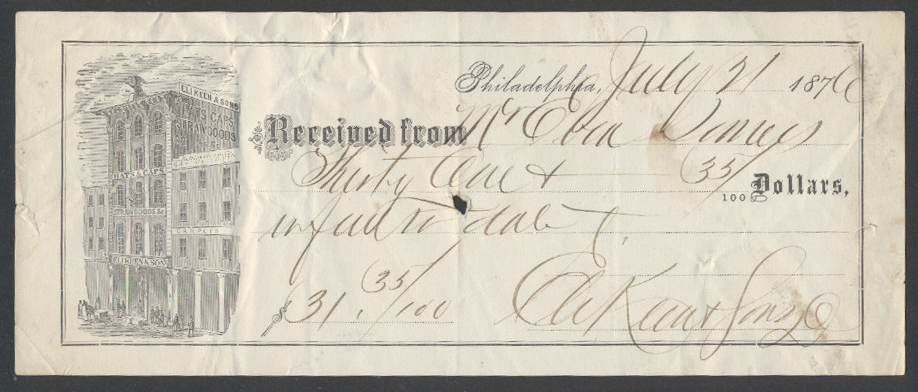 Philadelphia, July 21 1876
Received from Mr Eben
Thirty One & 35/100 Dollars,
in full to date
$31.35/100
Eli Keen & Sons
ELI KEEN & SONS
HATS CAPS
STRAW GOODS
HATS & CAPS
STRAW GOODS &c
CARPETS
ELI KEEN & SONS